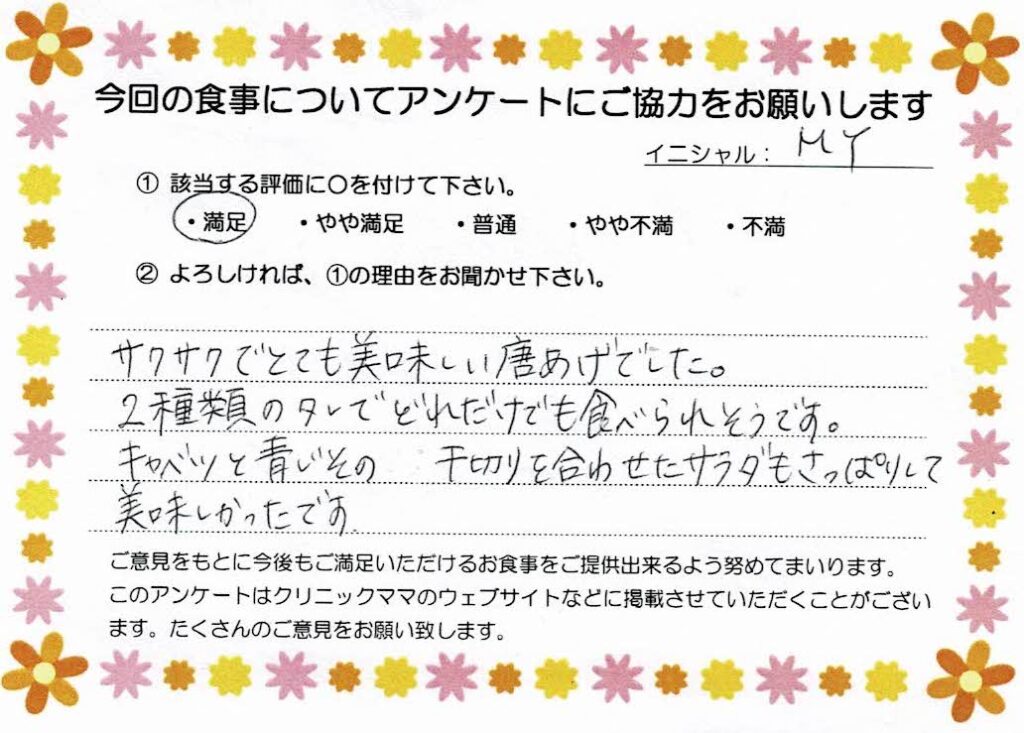 今回の食事についてアンケートにご協力をお願いします
イニシャル： MY
① 該当する評価に〇を付けて下さい。
・満足 ・やや満足 ・普通 ・やや不満 ・不満
② よろしければ、①の理由をお聞かせ下さい。
サクサクでとても美味しい唐あげでした。
2種類のタレでどれだけでも食べられそうです。
キャベツと青じその 千切りを合わせたサラダもさっぱりして
美味しかったです
ご意見をもとに今後もご満足いただけるお食事をご提供出来るよう努めてまいります。
このアンケートはクリニックママのウェブサイトなどに掲載させていただくことがござい
ます。たくさんのご意見をお願い致します。